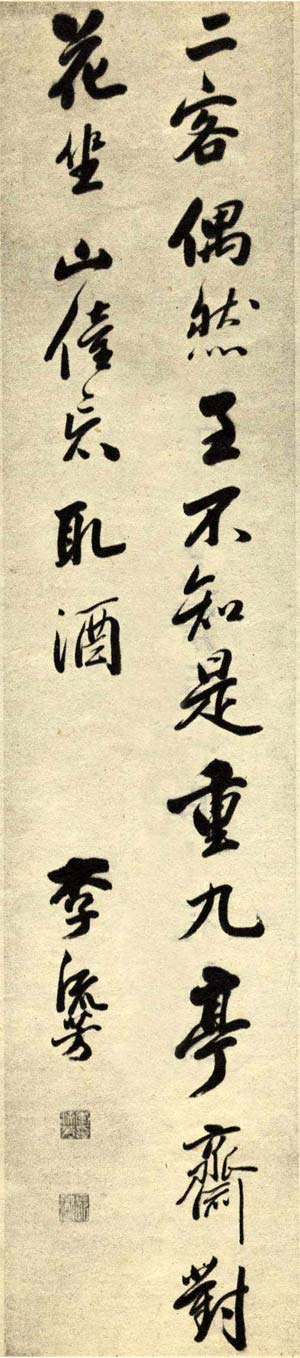 二客偶然至不知是重九亭齋對
花坐山僮忘取酒
李流芳